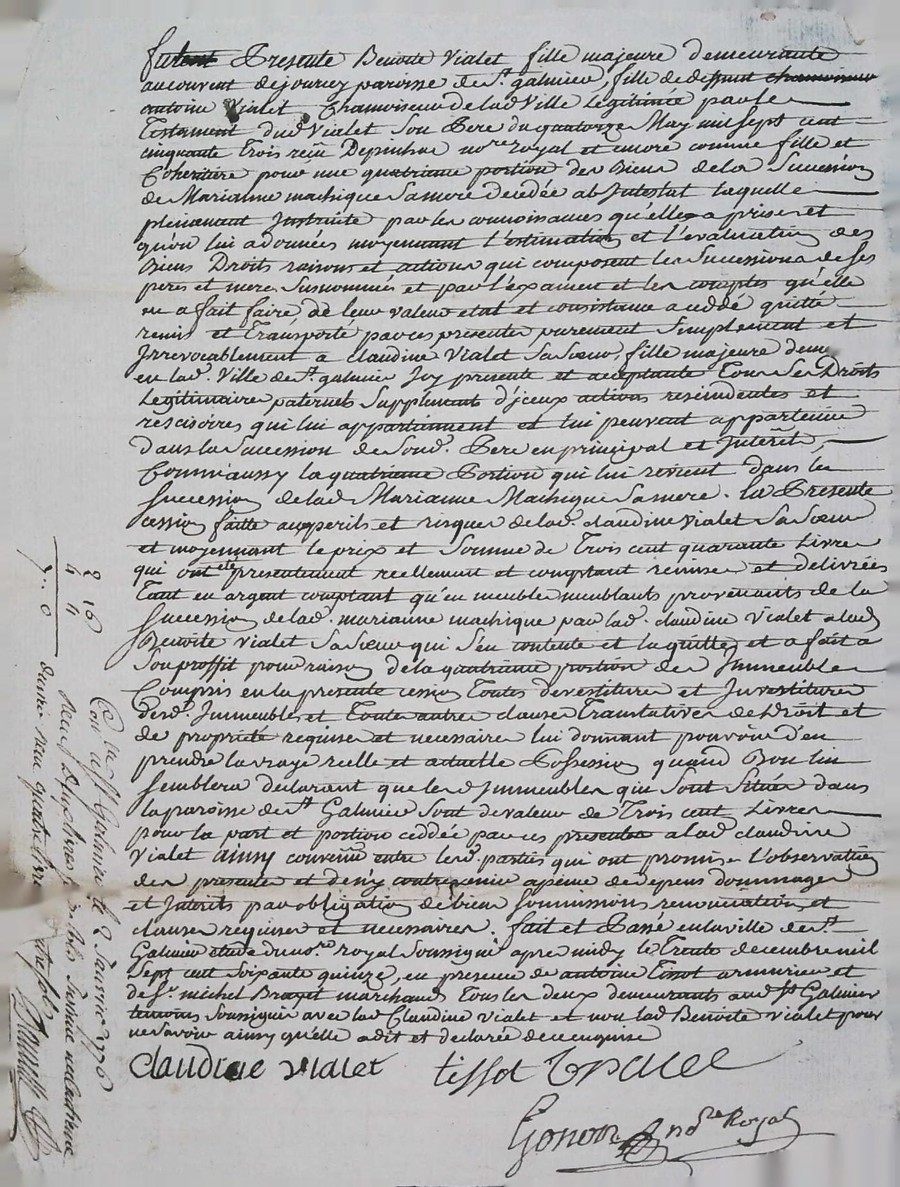 fut Presente Benoite Vialet fille majeure demeurante
au couvent de jourcey paroisse de St. galmier, fille de deffunt
antoine Vialet Chamoiseur de lad Ville Legitimée par le
Testament dud Vialet Son Pere du quatorze May mil sept cent
cinquante Trois reçu Depinhac nore royal et encore comme fille et
Coheritiere pour une quatrieme portion des Biens de la Succession
de Marianne machique Sa mere decedée ab Intestat laquelle
pleinement Instruite par les connoissances qu'elle a prises et
qu'on lui a données moyennant l'estimation et l'evaluation des
Biens Droits raisons et actions qui composent les Successions de ses
pere et mere Susnommés et par l'examen et les comptes qu'elle
en a fait faire de leur valeur etat et consistance a cedé quitté
remis et Transporté par ces presentes purement Simplement et
Irrevocablement a Claudine Vialet Sa Sœur, fille majeure demt
en lad. Ville de St. galmier Icy presente et acceptante Tous Ses Droits
Legitimaires paternels Supplement d'iceux actions rescindentes et
rescisoires qui lui appartiennent et lui peuvent appartenir
dans la Succession de Sond. Pere en principal et Interêt,
Comm'aussy la quatrieme Portion qui lui revient dans la
Succession de lad Marianne Machique Sa mere. la Presente
cession faitte aux perils et risques de lad. claudine Vialet Sa Sœur
et moyennant le prix et Somme de Trois cent quarante Livres
qui ont eté presentement reellement et comptant remises et delivrées
Tant en argent comptant qu'en meubles meublants provenants de la
Succession de lad. marianne machique par lad. claudine Vialet a lad
Benoite Vialet Sa Sœur qui S'en contente et la quitte, et a fait a
Son proffit pour raison de la quatrieme portion des Immeubles
Compris en la presente cession Toutes devestitures et Investitures
desd. Immeubles et Toute autre clause Translative de Droit et
de proprieté requise et necessaire lui donnant pouvoir d'en
prendre la vraye reelle et actuelle Possession quand Bon lui
semblera declarant que lesd Immeubles qui Sont Situés dans
la paroisse de St Galmier Sont de valeur de Trois cent Livres
pour la part et portion cedée par ces presentes a lad claudine
Vialet ainsy convenu entre lesd. parties qui ont promis l'observation
des presentes et de n'y contrevenir a peine de depens dommages
et Interets par obligation de biens Soumissions renonciations et
clauses requises et necessaires. fait et Passé en la ville de St.
Galmier etude du nore. royal Soussigné apres midy le Trente decembre mil
Sept cent Soixante quinze, en presence de antoine Tissot armurier et
de Sr. michel marchand Tous les deux demeurants aud St Galmier
temoins Soussignés avec lad Claudine Vialet et non lad Benoite Vialet pour
ne savoir ainsy qu'elle a dit et declarée de ce enquise
claudine vialet tissot
nore Royal
Con. a St Galmier le 2 Janvier 1776